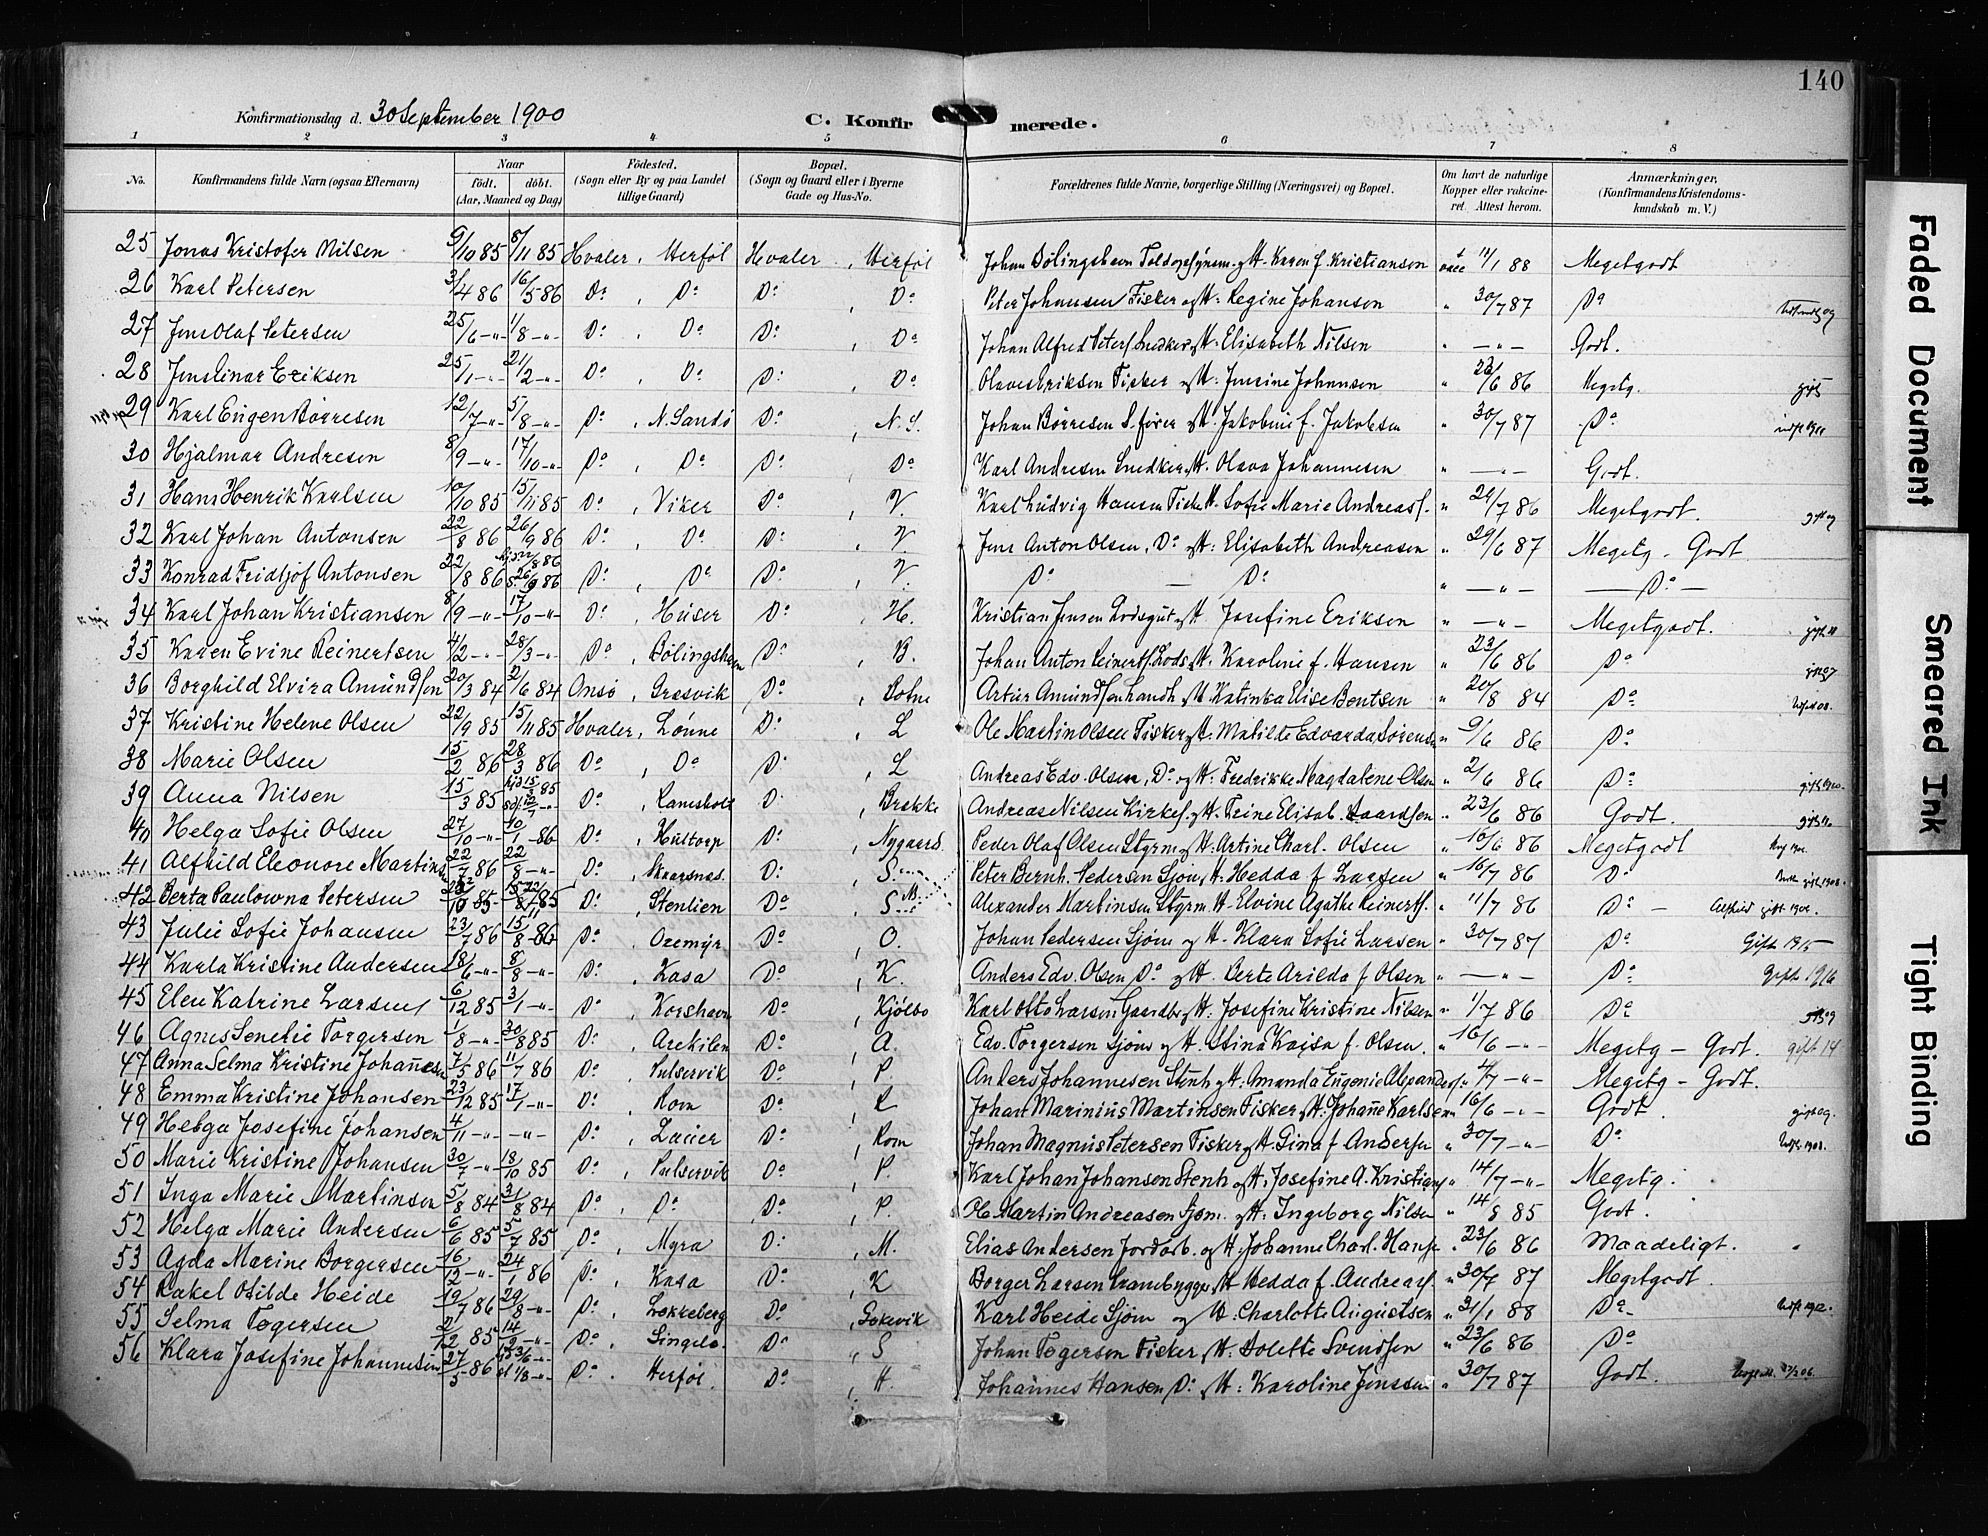 140
Konfirmationsdag d. 30 September 1900
C. Konfirmerede.
1 2 3 4 5 6 7 8
No. Konfirmandens fulde Navn (ogsaa Efternavn) Naar født. døbt. (Aar, Maaned og Dag) Fødested. (Sogn eller By og paa Landet tillige Gaard) Bopæl. (Sogn og Gaard eller i Byerne Gade og Hus-No. Forældrenes fulde Navne, borgerlige Stilling (Næringsvei) og Bopæl. Om havt de naturlige Kopper eller vakcineret. Attest herom. Anmærkninger, (Konfirmandens Kristendomskundskab m. V.)
25 Jonas Kristofer Nilsen 9/10 85 8/11 85 Hvaler, Herføl Hvaler, Herføl Johan Bølingshavn H. Karen f. Kristiansen vacc 11/1 88 Megetgodt
26 Karl Petersen 3/4 86 16/5 86 Do, Do Do, Do Peter Johansen Fisker og H: Regine Johansen " 30/7 87 Do
27 Jens Olaf Petersen 25/6 -"- 1/8 -"- Do, Do Do, Do Johan Alfred Peters. Snedker og H: Elisabeth Nilsen " -"- Godt.
28 Jens Einar Eriksen 25/1 -"- 21/2 -"- Do, Do Do, Do Olaves Eriksen Fisker og H: Jensine Johansen " 23/6 86 Megetg.
29 Karl Eugen Børresen 12/7 -"- 5/8 -"- Do, N. Sandø Do, N.S. Johan Børresen S.fører og H. Jakobine f. Jakobsen " 30/7 87 Do
30 Hjalmar Andresen 8/9 -"- 17/10 -"- Do, Do Do, Do Karl Andresen Snedker og H. Olava Johannesen " -"- Godt.
31 Hans Henrik Karlsen 10/10 85 15/11 85 Do, Viker Do, V. Karl Ludvig Hansen Fisker H. Sofie Marie Andreasf. " 29/7 86 Megetgodt.
32 Karl Johan Antonsen 22/8 86 26/9 86 Do, Do Do, V. Jens Anton Olsen, Do og H: Elisabeth Andreasen " 29/6 87 Megetg - Godt
33 Konrad Fridtjof Antonsen 22/8 86 26/9 86 Do, Do Do, V. Do - Do " -"- - Do -
34 Karl Johan Kristiansen 8/9 -"- 17/10 -"- Do, Huser Do, H. Kristian Jensen Lodsgut og H Josefine Eriksen " -"- Megetgodt.
35 Karen Evine Reinertsen 4/2 -"- 28/3 -"- Do, Bølingshavn Do, B. Johan Anton Reinerts. Lods og H. Karoline f. Hansen " 23/6 86 Do
36 Borghild Elvira Amundsen 20/3 84 2/6 84 Onsø, Gressvik Do, Botne Artur Amundsen handl. og H Katinka Elise Bentsen " 20/8 84 Do
37 Kristine Helene Olsen 22/9 85 15/11 85 Hvaler, Lønne Do, L Ole Martin Olsen Fisker og H. Matilde Edvarda Sørensen " 9/6 86 Do
38 Marie Olsen 15/2 86 28/3 86 Do, Do Do, L Andreas Edv. Olsen, Do og H: Fredrikke Magdalene Olsen " 2/6 86 Do
39 Anna Nilsen 15/3 85 Do, Ramshold Do, Brekke Andreas Nilsen Kirkes. og H. Trine Elisab. " 23/6 86 Godt.
40 Helga Sofie Olsen 27/10 -"- 10/1 86 Do, Hultorp Do, Nygaard Peder Olaf Olsen Styrm og H: Artine Charl. Olsen " 10/6 86 Megetgodt
41 Alfhild Eleonore Martins 22/7 86 22/8 -"- Do, Skaarsnes. Do, S. Peter Bernh. Pedersen Sjøm, H: Hedda f Larsen " 16/7 86 Do
42 Berta Paulowna Petersen 10 85 Do, Stenlien Do, S Alexander Martinsen Styrm H. Elvine Agathe Reinerts. " 11/7 86 Do - Alfhild gift 1902.
43 Julie Sofie Johansen 23/7 86 15/8 86 Do, Ozemyr Do, O. Johan Pedersen Sjøm og H. Klara Sofie Larsen " 30/7 87 Do Gift 1915
44 Karla Kristine Andersen 18/6 -"- 8/8 -"- Do, Kasa Do, K. Anders Edv. Olsen Do og H. Berte Arilda f Olsen " -"- Do Gift 1916
45 Elen Katrine Larsen 6/12 85 3/1 -"- Do, Korshavn Do, Kjølbo Karl Otto Larsen Gaardbr og H. Josefine Kristine Nilsen " 1/7 86 Do
46 Agnes Senelie Torgersen 1/8 -"- 30/8 85 Do, Arekilen Do, A. Edv. Torgersen Sjøm og H. Stina Kajsa f. Olsen. " 16/6 -"- Megetg - Godt. gift 14
47 Anna Selma Kristine Johannesen 7/5 86 11/7 86 Do, Pulservik Do, P. Anders Johannesen Stenh og H: Amanda Eugenie Alexanders. " 4/7 -"- Megetg - Godt.
48 Emma Kristine Johansen 23/12 85 17/1 -"- Do, Rom Do, R Johan Marinius Martinsen Fisker og H: Johanne Karlsen " 16/6 -"- Godt.
49 Helga Josefine Johansen 4/11 -"- -"- Do, Lauer Do, Rom Johan Magnus Petersen Fisker og H. Gina f Andersen " 30/7 -"- Do
50 Marie Kristine Johansen 30/7 -"- 18/10 85 Do, Pulservik Do, P. Karl Johan Johansen Stenh og H. Josefine A. Kristians " 14/7 -"- Megetg.
51 Inga Marie Martinsen 5/8 84 31/8 84 Do, Do Do, P. Ole Martin Andreasen Sjøm. og H: Ingeborg Nilsen " 14/8 85 Godt.
52 Helga Marie Andersen 6/6 85 5/7 85 Do, Myra Do, M. Elias Andersen Jordarb. og H. Johanne Charl. Hans. " 23/6 86 Maadeligt.
53 Agda Marine Borgersen 16/12 -"- 24/1 86 Do, Kasa Do, K Borger Larsen og H Hedda f. Andreass. " 30/7 87 Megetgodt.
54 Rakel Otilde Heide 19/7 86 29/8 -"- Do, Løkkeberg Do, Gokevik Karl Heide Sjøm og H: Charlotte Augustsen " 31/1 88 Do
55 Selma Tøgersen 2/12 85 14/2 -"- Do, Singelø Do, S Johan Tøgersen Fisker og H. Dolette Svendsen " 23/6 86 Do
56 Klara Josefine Johannesen 27/5 86 1/8 -"- Do, Herføl. Do, H. Johannes Hansen Do og H: Karoline Jenssen " 30/7 87 Godt.
Faded Document
Smeared Ink
Tight Binding